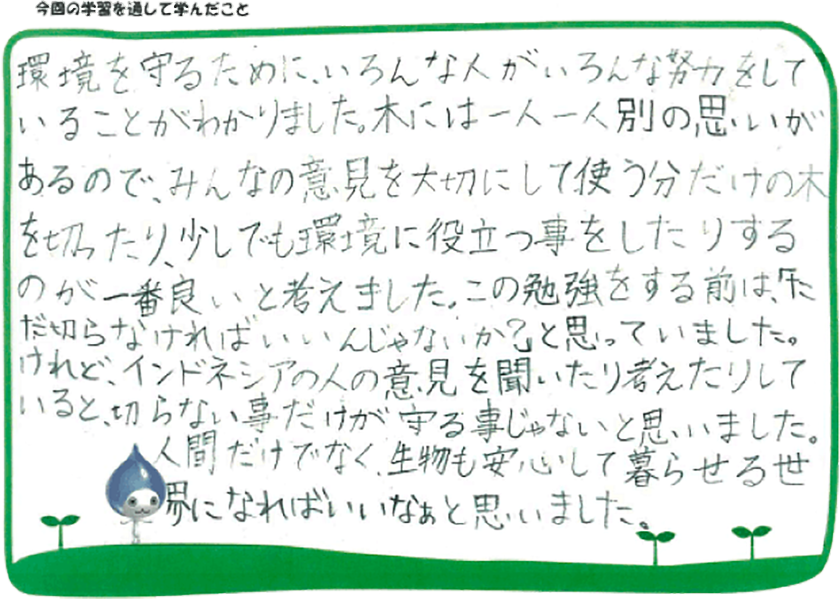 今回の学習を通して学んだこと
環境を守るために、いろんな人がいろんな努力をして
いることがわかりました。木には一人一人別の思いが
あるので、みんなの意見を大切にして使う分だけの木
を切ったり、少しでも環境に役立つ事をしたりする
のが一番良いと考えました。この勉強をする前は、「た
だ切らなければいいんじゃないか？」と思っていました。
けれど、インドネシアの人の意見を聞いたり考えたりして
いると、切らない事だけが守る事じゃないと思いました。
人間だけでなく、生物も安心して暮らせる世
界になればいいなぁと思いました。